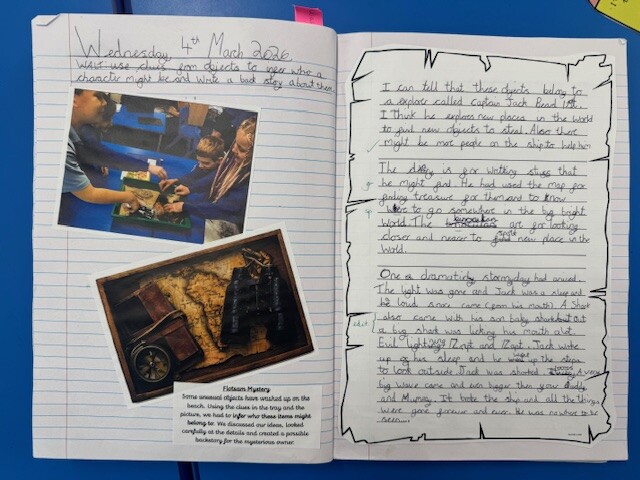 Wednesday 4th March 2026.
WALT use clues from objects to infer who a
character might be and write a back story about them.
Flotsam Mystery
Some unusual objects have washed up on the
beach. Using the clues in the tray and the
picture, we had to infer who these items might
belong to. We discussed our ideas, looked
carefully at the details and created a possible
backstory for the mysterious owner.
I can tell that these objects belong to
a explorer called Captain Jack Beard 1st.
I think he explores new places in the world
to find new objects to steal. Also there
might be more people on the ship to help him
The diary is for writting stuff that
he might find. He had used the map for
finding treasure for them and to know
were to go somewhere in the big bright
world. The binoculars are for looking
closer and nearer to new place in the
world.
One a dramatic stormy day had arived.
The light was gone and Jack was a sleep and
loud snore came (from his mouth). A Shark
also came with his son baby shark but
a big shark was licking his mouth alot.
Evil lightning Zapt and Zapt. Jack woke
up of his sleep and he up the steps
to look outside. Jack was shocked A very
big wave came and even bigger then your Daddy
and Mummy. It broke the ship and all the things
were gone forever and ever. He was nowhere to be
seen...
edit